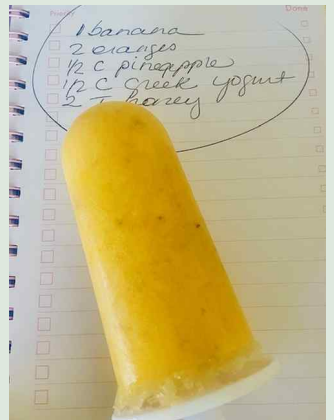 Priority
Done
1 banana
2 oranges
1/2 C pineapple
1/2 C Greek yogurt
2 T honey